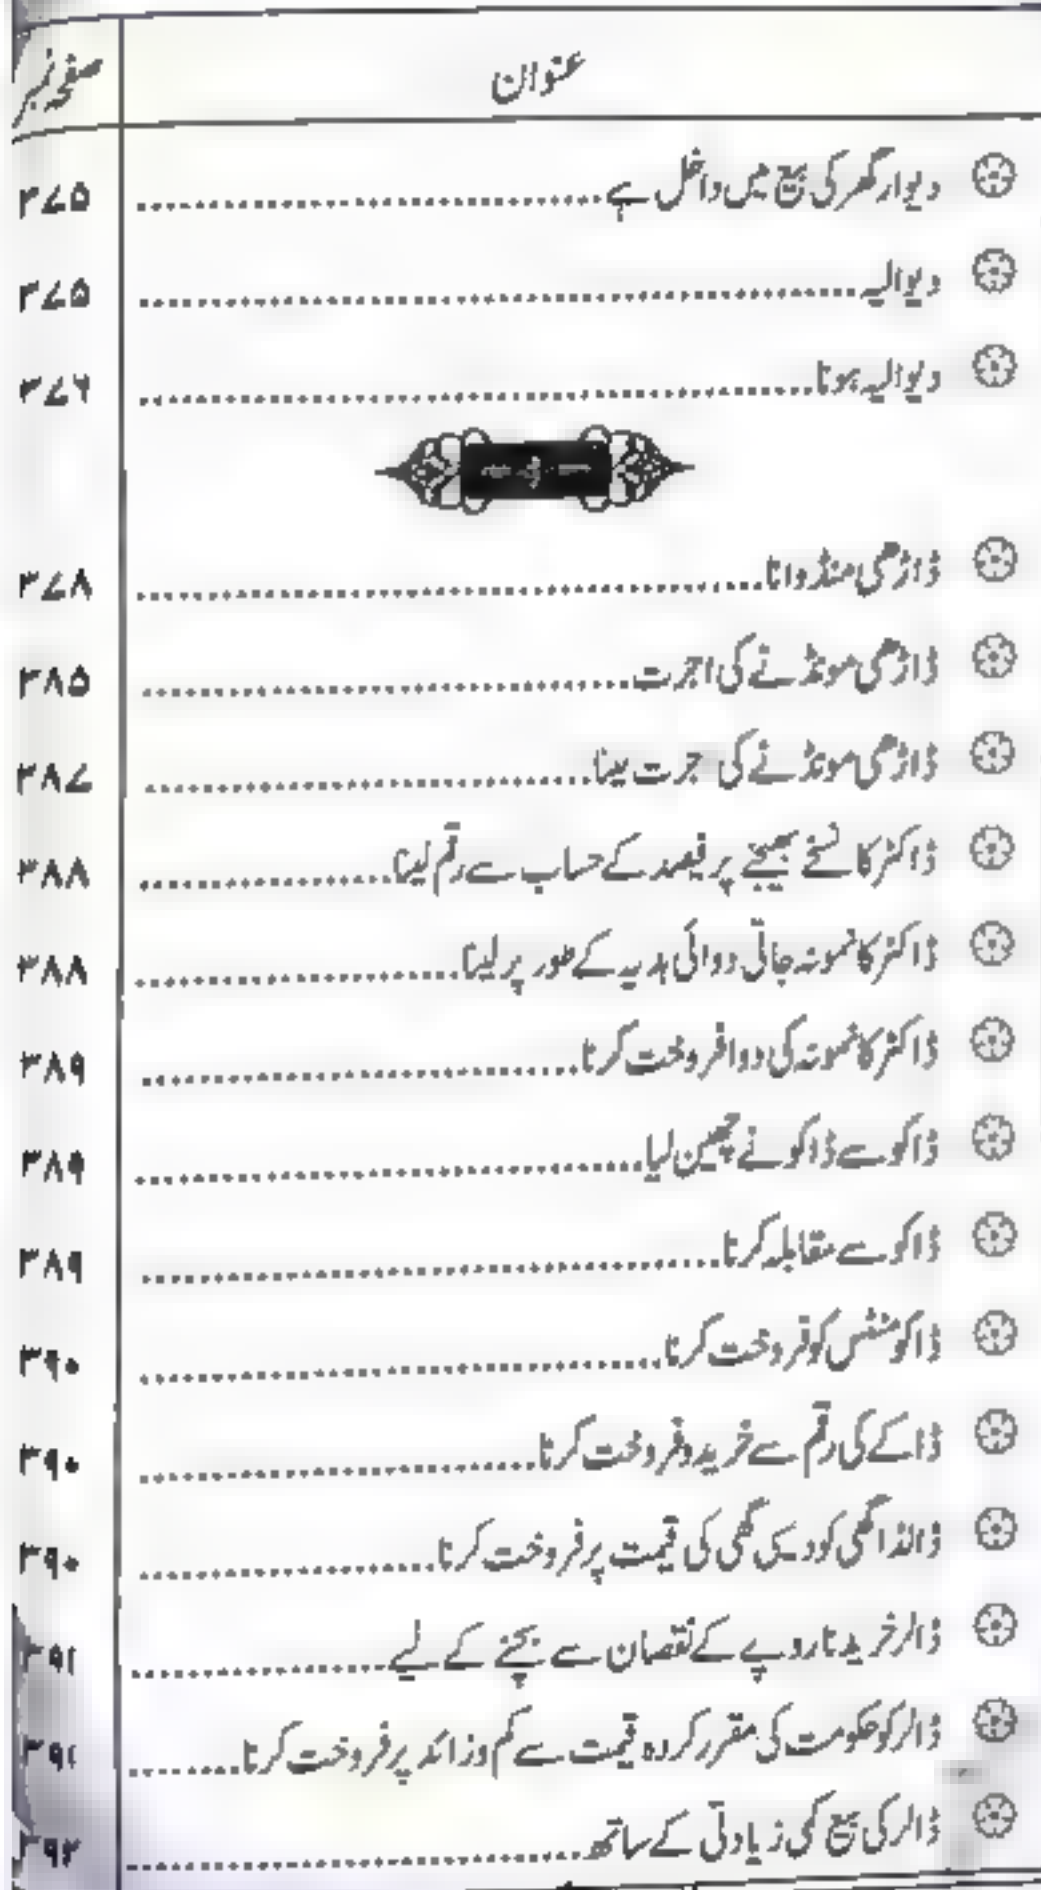 عنوان صفحہ نمبر
دیوار گھر کی بیع میں داخل ہے ۳۷۵
دیوالیہ ۳۷۵
دیوالیہ ہونا ۳۷۶
ڈاڑھی منڈوانا ۳۷۸
ڈاڑھی مونڈنے کی اجرت ۳۸۵
ڈاڑھی مونڈنے کی اجرت لینا ۳۸۷
ڈاکٹر کا نسخے بھیجنے پر فیصد کے حساب سے رقم لینا ۳۸۸
ڈاکٹر کا نمونہ جاتی دوائی ہدیہ کے طور پر لینا ۳۸۸
ڈاکٹر کا نمونہ کی دوا فروخت کرنا ۳۸۹
ڈاکو سے ڈاکو نے چھین لیا ۳۸۹
ڈاکو سے مقابلہ کرنا ۳۸۹
ڈاکومنٹس کو فروخت کرنا ۳۹۰
ڈاکے کی رقم سے خرید و فروخت کرنا ۳۹۰
ڈالڈا گھی کو دیسی گھی کی قیمت پر فروخت کرنا ۳۹۰
ڈالر خریدنا روپے کے نقصان سے بچنے کے لیے ۳۹۱
ڈالر کو حکومت کی مقرر کردہ قیمت سے کم و زائد پر فروخت کرنا ۳۹۱
ڈالر کی بیع کمی زیادتی کے ساتھ ۳۹۲